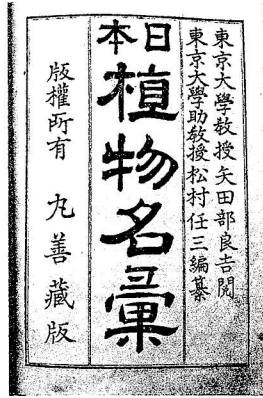 東京大學教授矢田部良吉閲
東京大學助教授松村任三編纂
日本
植物名彙
版權所有 丸善藏版